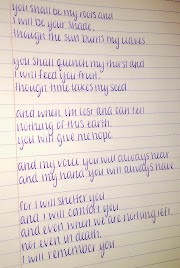 you shall be my roots and
i will be your shade,
though the sun burns my leaves.
you shall quench my thirst and
i will feed you fruit,
though time takes my seed.
and when i'm lost and can tell
nothing of this earth,
you will give me hope.
and my voice you will always hear.
and my hand you will always have.
for i will shelter you.
and i will comfort you.
and even when we are nothing left,
not even in death,
i will remember you.